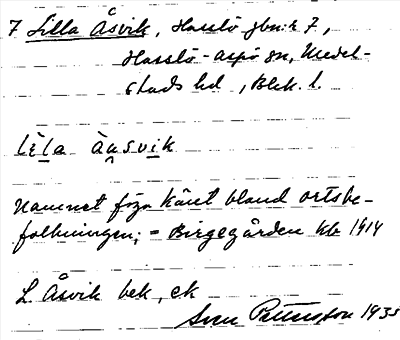 7 Lilla Åsvik, Hasslö jbn:k 7,
Hasslö-Aspö sn, Medel-
stads hd, Blek. l.
lèla àu̯svik
Namnet föga känt bland ortsbe-
folkningen; = Birgegården kb 1914
L. Åsvik bek, ek
Sven 1935